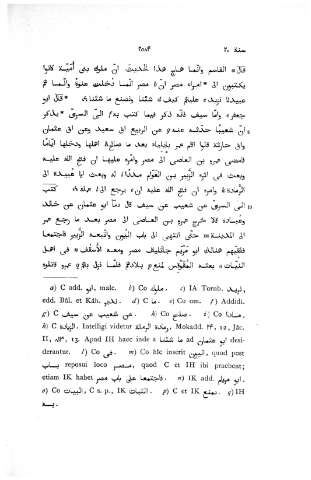 سنة ٢٠ ٢٥٨٤
قال القاسم وانّما هاج هذا الحديث انّ ملوك بنى أُمَيّة كانوا
يكتبون الى امراء مصر انّ مصر انّما دُخلت عنوةً وانّما هم
عبيدنا نزيد عليهم كيف شئنا ونصنع ما شئنا، قال ابو
جعفر وامّا سيف فانّه ذكر فيما كتب به الىّ السرىّ يذكر
انّ شعيبًا حدّثه عنه عن الربيع ابى سعيد وعن ابى عثمان
وابى حارثة قالوا اقام عمر بايلياء بعد ما صالح اهلها ودخلها ايّامًا
فامضى عمرو بن العاصى الى مصر وامّره عليها ان فتح الله عليه
وبعث فى اثره الزبير بن العوّام مددًا له وبعث ابا عُبيدة الى
الرمادة وامره ان فتح الله عليه ان يرجع الى عمله، كتب
الىّ السرىّ عن شعيب عن سيف قال دمّا ابو عثمان عن خالد
وعُبادة قالا خرج عمرو بن العاصى الى مصر بعد ما رجع عمر
الى المدينة حتّى انتهى الى باب اليون واتّبعه الزبير فاجتمعا
فلقيهم هنالك ابو مَرْيَم جاثليق مصر ومعه الأسقف فى اهل
النيّات بعثه المُقَوْقِس لمنع بلادهم فلمّا نزل بهم عمرو قاتلوه
a) C add. ابو, malc. b) Co ملوك. c) IA Tornb. تريد,
edd. Bûl. et Kâh. نريد. d) C ما. e) Co om. f) Addidi.
g) C عن شعيب عن سيف. h) Co صنع. i) Co مددا.
k) C الهادة. Intelligi videtur رمادة الرملة, Mokadd.
II, Apud IH haec inde a ما شئنا ad ابو عثمان desi-
derantur. l) Co فى. m) Co hîc inscrit اليون, quod post
باب reposui loco مصر, quod C et IH ibi praebent;
etiam IK habet فاجتمعا على باب مصر. n) IK add. ابو مريام.
o) Co البيات, C s. p., IK الثبات. p) C et IK يمنع. q) IH